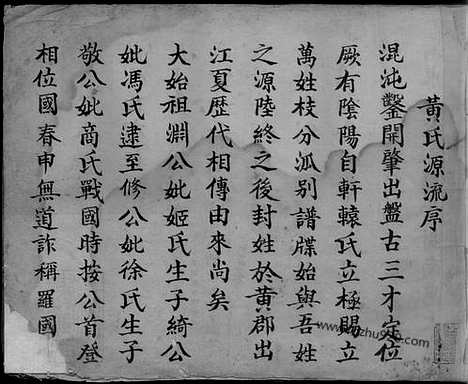 黃氏源流序
混沌鑿開肇出盤古三才定位
厥有陰陽自軒轅氏立極賜立
萬姓枝分泒別譜牒始與吾姓
之源陸終之後封姓於黄郡出
江夏歷代相傳由來尚矣
大始祖淵公妣姬氏生子綺公
妣馮氏逮至修公妣徐氏生子
敬公妣商氏戰國時按公首登
相位國春申無道詐稱羅國